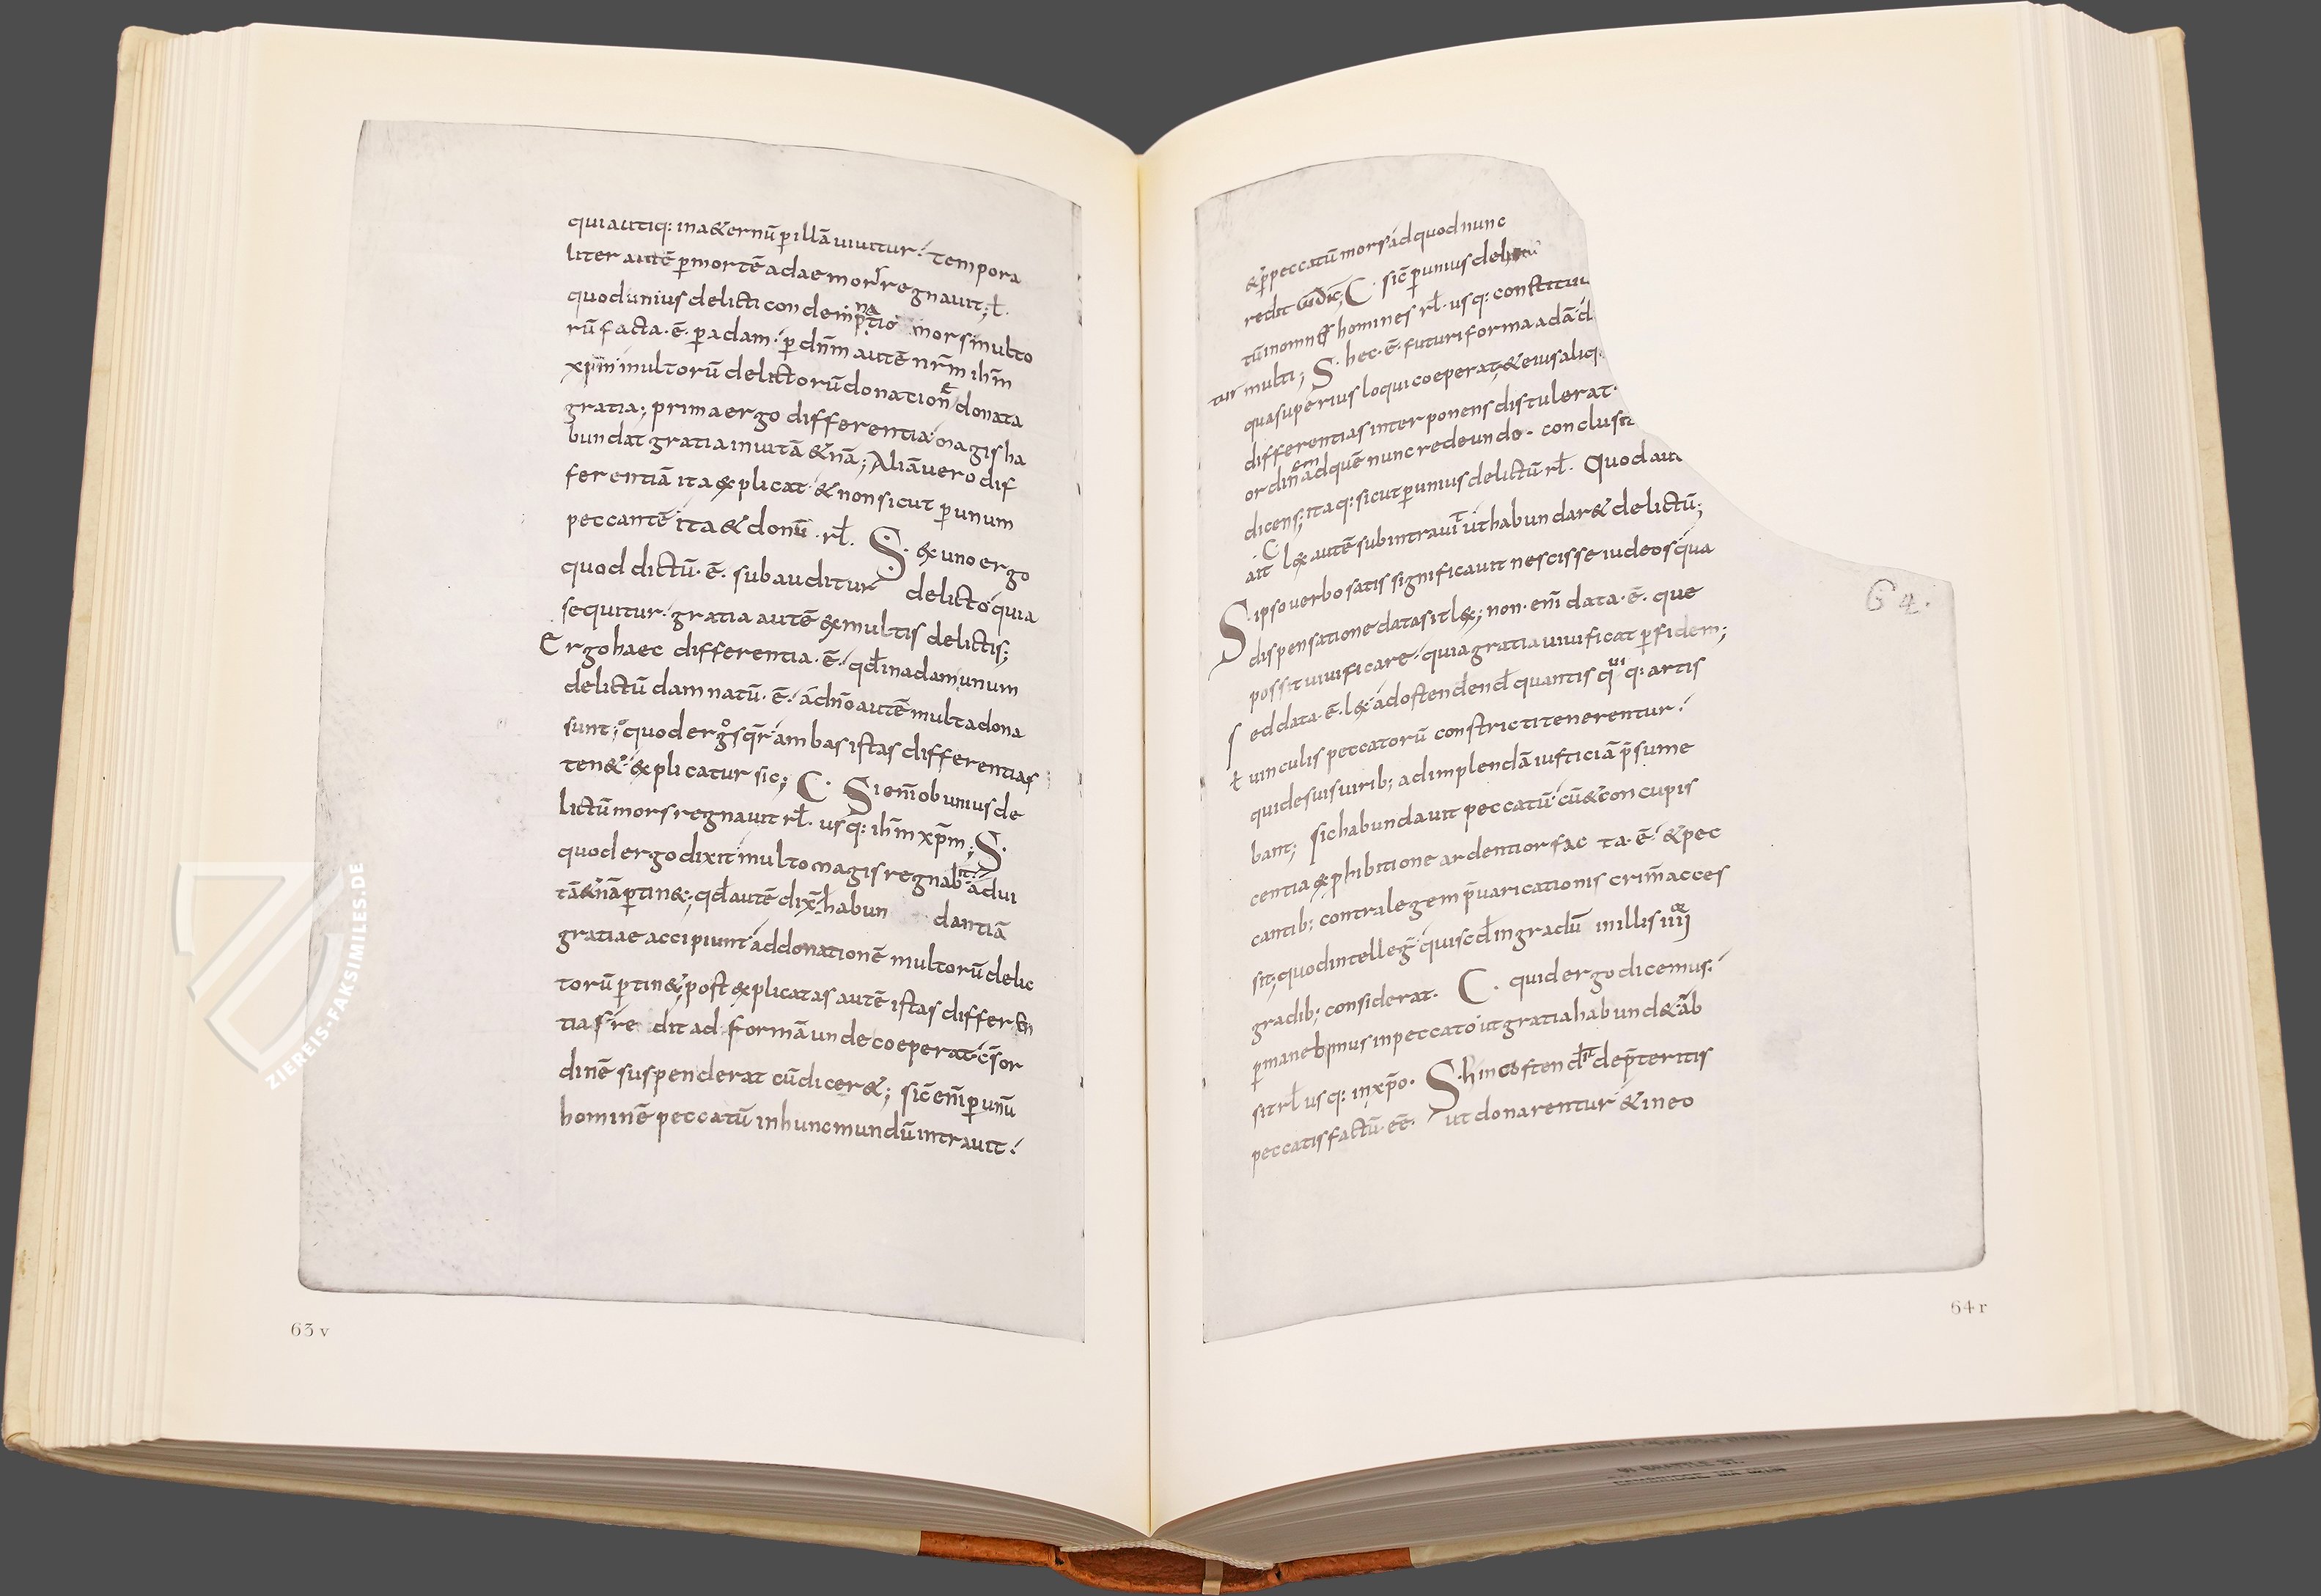 qui autiq: in a&ernū p illā uiuitur: tempora
liter autē p mortē adae mors regnauit; ł.
quod unius delicti condempnatio mors multo
rū facta·ē· p adam· p dn̄m autē nr̄m ih̄m
xp̄m multorū delictorū donationē donata
gratia; prima ergo differentia magis ha
bundat gratia in uitā &nā; Aliā uero dif
ferentiā ita explicat & non sicut p unum
peccantē ita & donū· rł· S· & uno ergo
quod dictū·ē· subauditur delicto quia
sequitur· gratia autē ex multis delictis;
Ergo haec differentia·ē· qđ in adam unum
delictū damnatū·ē· ā dn̄o autē multa dona
sunt; quod ergo sqr̄ ambas istas differentias
ten&· explicatur sic; C· Si enī ob unius de
lictū mors regnauit rł· usq: ih̄m xp̄m; S·
quod ergo dixit multo magis regnabit ad ui
tā &nā ptin&; qđ autē dix̄ habundantiā
gratiae accipiunt ad donationē multorū delic
torū ptin&; post explicatas autē istas differen
tias re dit ad formā unde coeperat cs̄ or
dinē suspenderat cū dicer&; sic̄ enī p unū
hominē peccatū in hunc mundū intrauit:
& p peccatū mors ad quod nunc
redit C· sic̄ p unius
tū in omnes homines rł· usq: constitu
tur multi; S· hec·ē· futuri forma adā
qua superius loqui coeperat & eius aliq
differentias interponens distulerat·
ordinem ad quē nunc redeundo· conclusit
dicens; itaq: sicut p unius delictū rł· Quod
ait C l& autē subintrauit ut habundar& delictū;
S· ipso uerbo satis significauit nescisse iudeos qua
dispensatione data sit l&; non·enī data·ē· que
possit uiuificare· quia gratia uiuificat p fidem;
sed data·ē· l& ad ostendenđ quantis qui q: artis
ł uinculis peccatorū constricti tenerentur·
qui de suis uirib; ad implendā iusticiā p̄sume
bant; sic habundauit peccatū cū & concupis
centia ex phibitione ardentior fac ta·ē· & pec
cantib; contra legem p̄uaricationis crim̄ acces
sit; quod intelleg quisđ in gradū in illis iiii
gradib; considerat· C· quid ergo dicemus·
pmanebimus in peccato ut gratia habund& ab
sit rł usq: in xp̄o· S· hinc ostendit de p̄teritis
peccatis factū·ēē· ut donarentur & in eo
64·
63 v
64 r
ZIEREIS-FAKSIMILES.DE